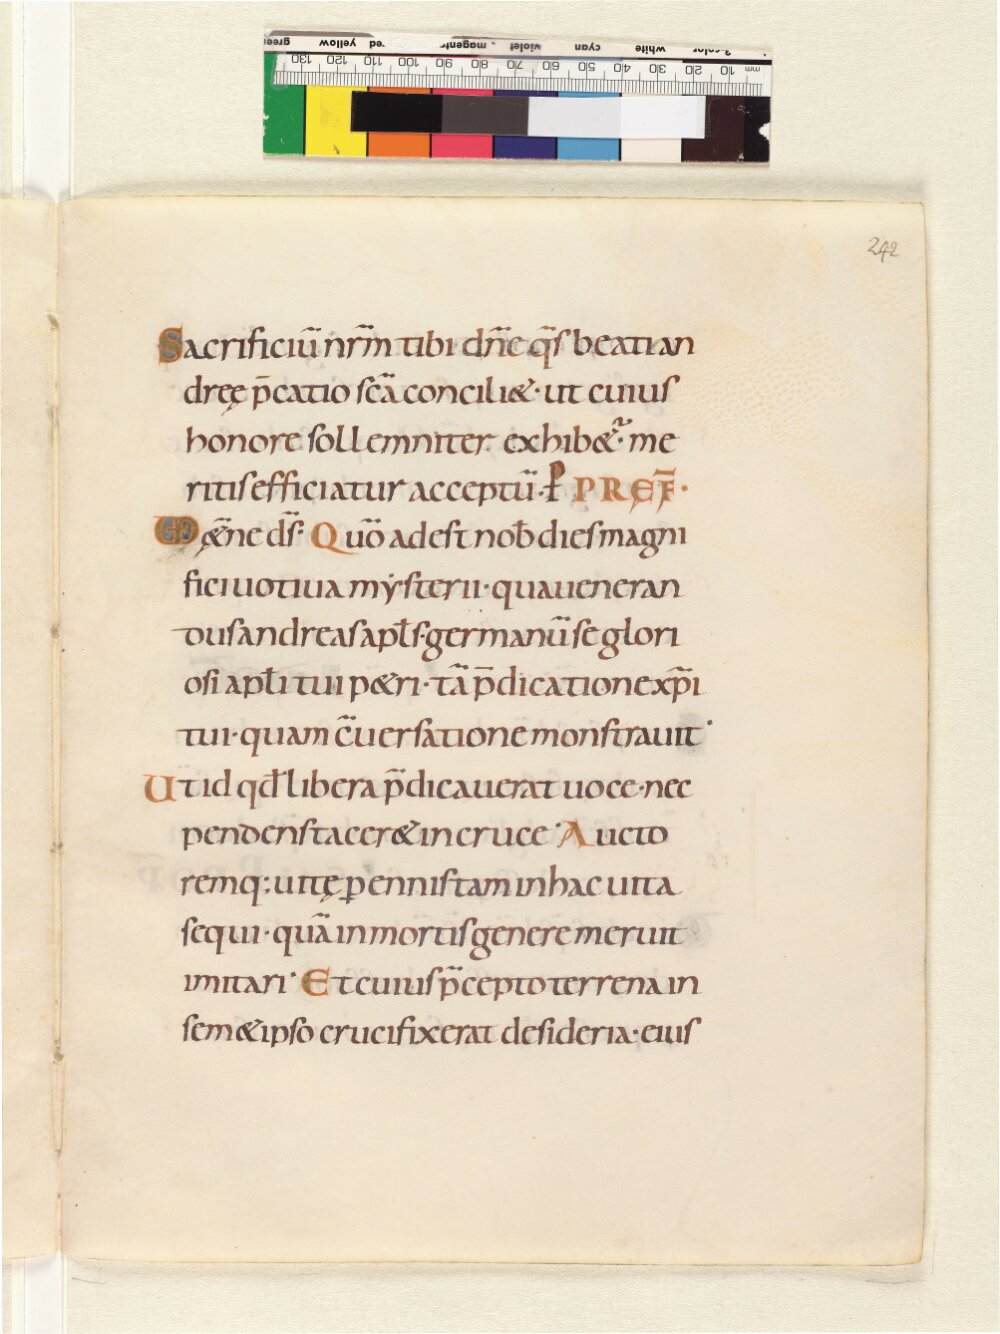 242
Sacrificiū nr̄m tibi dn̄e qs̄ beati an
dreę p̄catio sc̄a conciliet· ut cuius
honore sollemniter exhibet᷑· me
ritis efficiatur acceptū· P PREF̄·
UD et̄ne ds̄· Quō adest nob̄ dies magni
fici uotiua mẏsterii· qua ueneran
dus andreas apłs· germanū se glori
osi apłi tui petri· tā p̄dicatione xp̄i
tui· quam c̄uersatione monstrauit·
Ut id qđ libera p̄dicauerat uoce· nec
pendens taceret in cruce· Aucto
remq: uitę ꝑennis tam in hac uita
sequi· quā in mortis genere meruit
imitari· Et cuius p̄cepto terrena in
semetipso crucifixerat desideria· eius